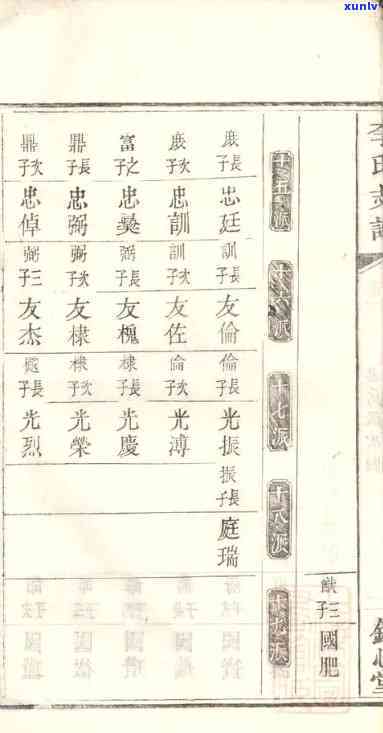 xunlv
李氏支譜
三子 國肥
十五派 十六派 十七派 十八派 十九派
長子 忠廷 訓長子 友倫 倫長子 光振 振長子 庭瑞
次子 忠訓 訓次子 友佐 倫次子 光溥
富之子 忠 弼長子 友槐 棣長子 光慶
鼎長子 忠弼 弼次子 友棣 棣次子 光榮
鼎次子 忠倬 弼三子 友杰 長子 光烈